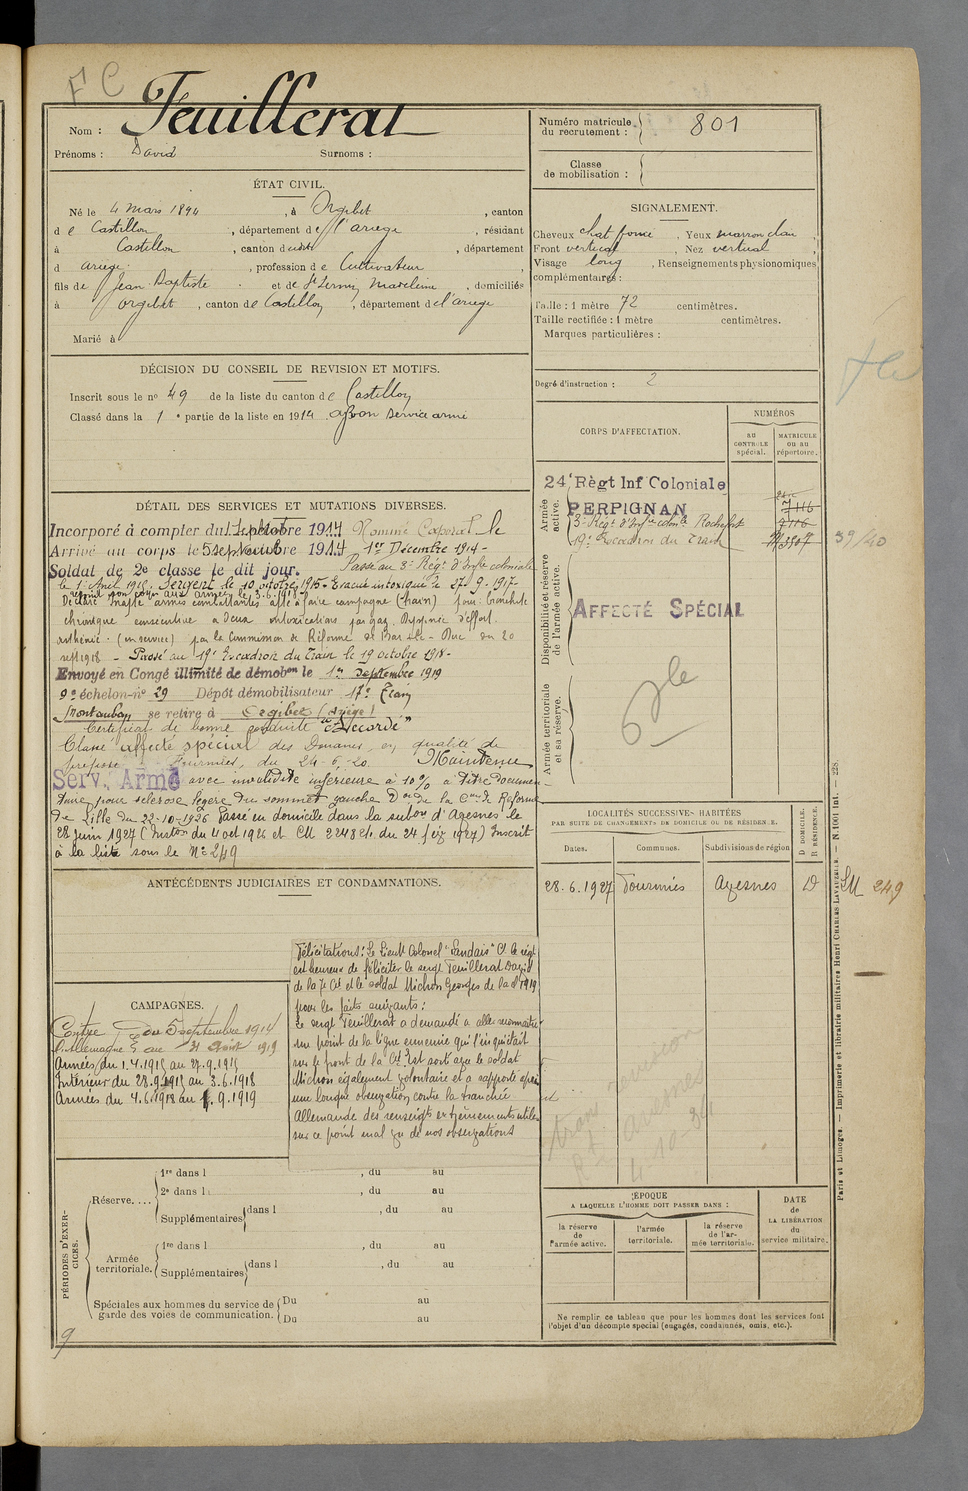 F C
Nom : Feuillerat
Prénoms : David Surnoms :
ÉTAT CIVIL.
Né le 4 mars 1894, à Orgibet, canton
de Castillon, département de l'ariege, résidant
à Castillon, canton dudit, département
d ariege, profession de Cultivateur
fils de Jean Baptiste et de St Sernin Madeleine, domiciliés
à orgibet, canton de Castillon, département de l'ariege
Marié à
DÉCISION DU CONSEIL DE REVISION ET MOTIFS.
Inscrit sous le no 49 de la liste du canton de Castillon
Classé dans la 1e partie de la liste en 1914 Bon service armé
DÉTAIL DES SERVICES ET MUTATIONS DIVERSES.
Incorporé à compter du 1 septembre 1914 Nommé Caporal le
Arrivé au corps le 5 septembre 1914 1er Décembre 1914 -
Soldat de 2e classe le dit jour. Passé au 3e Regt d'Infie coloniale
le 1 Avril 1915. Sergent le 10 octobre 1915 - Evacué intoxiqué le 27-9-1917-
rejoint son corps aux armées le 3.6.1918
Déclaré inapte armes combattantes apte à faire campagne (train) pour bronchite
chronique consecutive a deux intoxications par gaz. Dyspnée d'effort.
asthénie. (en service) par la Commission de Réforme de Bar le - Duc du 20
sept 1918 - Passé au 19e Escadron du Train le 19 octobre 1918 -
Envoyé en Congé illimité de démobon le 1er Septembre 1919
9e échelon - no 29 Dépôt démobilisateur 17e Train
Montauban se retire à Orgibet (Ariège)
Certificat de bonne conduite "Accordé"
Classé affecté spécial des Douanes, en qualité de
préposé à Fourmies, du 24-6-20. Maintenu
Serv. Armé avec invalidité inférieure à 10% a titre documen
taire pour sclerose légère du sommet gauche Don de la Con de Réforme
de Lille du 22-10-1926 Passé en domicile dans la subon d'Avesnes le
28 juin 1927 (Inston du 4 oct 1926 et CM 2248 du 24 fév 1927) Inscrit
à la liste sous le No 249
ANTÉCÉDENTS JUDICIAIRES ET CONDAMNATIONS.
Félicitations : Le Lieut Colonel "Landais" Ct le régt
est heureux de féliciter le sergt Feuillerat David
de la 7e Cie et le soldat Michon Georges de la
pour les faits suivants :
Le sergt Feuillerat a demandé a aller reconnaitre
un point de la ligne ennemie qui l'inquiétait
sur le front de la Cie. Est sorti avec le soldat
Michon également volontaire et a rapporté après
une longue observation contre la tranchée
Allemande des renseigts extrêmements utiles
sur ce point mal vu de nos observations
CAMPAGNES.
Contre l'Allemagne du 5 septembre 1914
au 31 Août 1919
Armées du 1.4.1915 au 27.9.1917
Intérieur du 28.9.1917 au 3.6.1918
Armées du 4.6.1918 au 1.9.1919
PÉRIODES D'EXERCICES.
Réserve.... 1re dans l , du au
2e dans l , du au
Supplémentaires dans l , du au
Armée territoriale. 1re dans l , du au
Supplémentaires dans l , du au
Spéciales aux hommes du service de garde des voies de communication. Du au
Du au
9
Numéro matricule du recrutement : 801
Classe de mobilisation :
SIGNALEMENT.
Cheveux chat. foncé, Yeux marron clair,
Front vertical, Nez vertical,
Visage long, Renseignements physionomiques
complémentaires :
Taille : 1 mètre 72 centimètres.
Taille rectifiée : 1 mètre centimètres.
Marques particulières :
Degré d'instruction : 2
CORPS D'AFFECTATION.
NUMÉROS
AU CONTROLE spécial.
MATRICULE ou au répertoire.
Armée active.
24e Règt Inf Coloniale
PERPIGNAN 7116
3e Régt d'Infie colole Rochefort 9116
19e Escadron du Train
39/40
Disponibilité et réserve de l'armée active.
AFFECTÉ SPÉCIAL
Armée territoriale et sa réserve.
LOCALITÉS SUCCESSIVES HABITÉES
PAR SUITE DE CHANGEMENTS DE DOMICILE OU DE RÉSIDENCE.
D DOMICILE. R RÉSIDENCE.
Dates. Communes. Subdivisions de région
28.6.1927 Fourmies Avesnes D LM 249
Avesnes
4-10-34
ÉPOQUE
A LAQUELLE L'HOMME DOIT PASSER DANS :
la réserve de l'armée active.
l'armée territoriale.
la réserve de l'armée territoriale.
DATE de LA LIBÉRATION du service militaire.
Ne remplir ce tableau que pour les hommes dont les services font
l'objet d'un décompte spécial (engagés, condamnés, omis, etc.).
Paris et Limoges. — Imprimerie et librairie militaires Henri CHARLES-LAVAUZELLE. — N. 1001 Int. — 228.